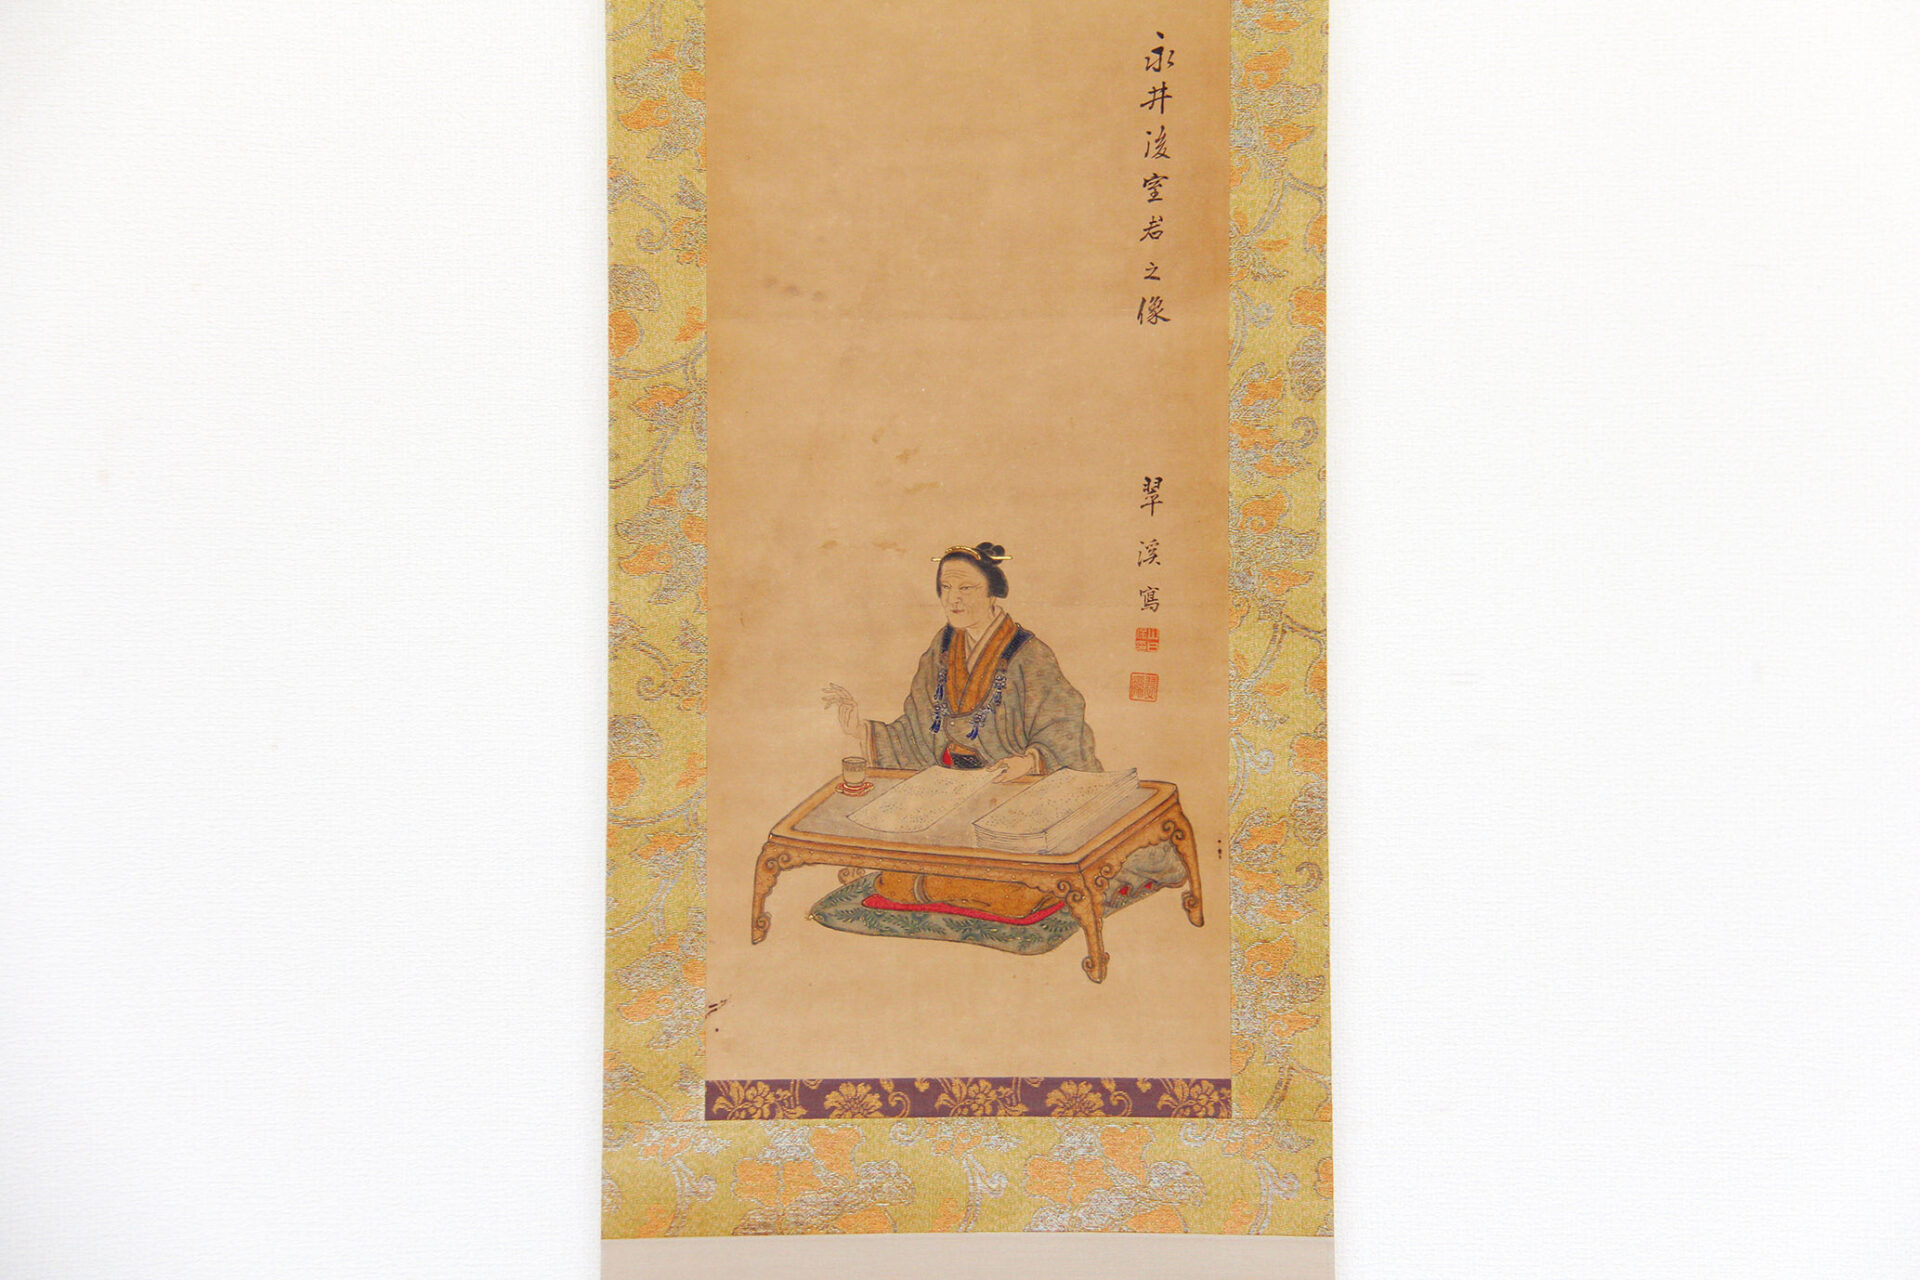 永井後室岩之像
翠渓寫